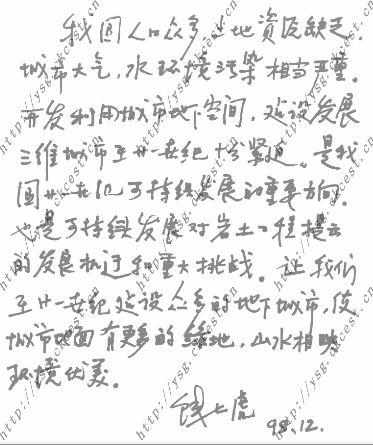 我国人口众多土地资源缺乏.
城市大气,水环境污染相当严重。
开发利用城市地下空间,建设发展
三维城市至廿一世纪十分紧迫。是我
国廿一世纪可持续发展的重要方向。
也是可持续发展对岩土工程提出
的发展机遇和重大挑战。让我们
至廿一世纪建设众多的地下城市,使
城市地面有更多的绿地,山水相映
环境优美。
钱七虎
98.12.
http://ysg.ckcest.cn